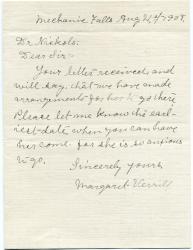 Mechanic Falls Aug 21, 1905,
Dr Nickols.
Dear Sir:-
Your letter received, and
will say, that we have made
arrangements for her to go there
Please let me know the earl-
iest date when you can have
her come. for she is so anxious
to go.
Sincerely yours
Margaret Verrill